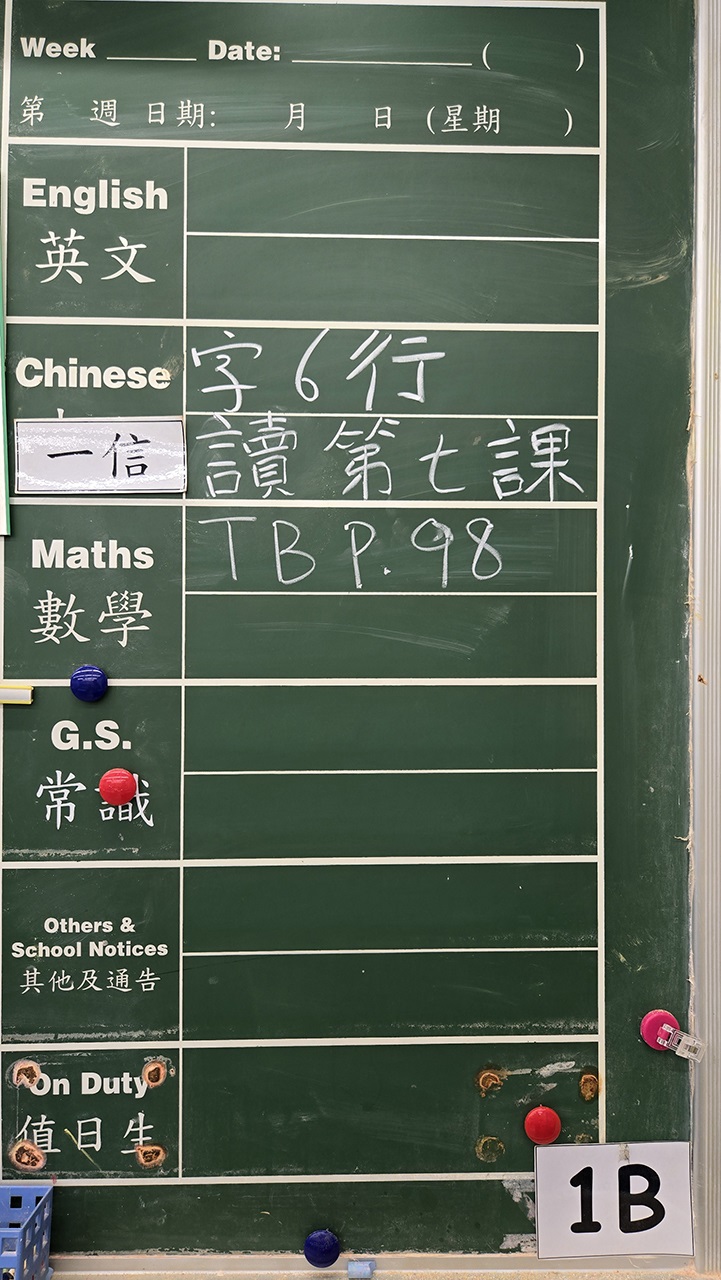 Week ______ Date: ____________ ( )
第 週 日期: 月 日 (星期 )
English
英文
Chinese 字 6 行
一信 讀 第 七 課
Maths TB P. 98
數學
G.S.
常識
Others &
School Notices
其他及通告
On Duty
值日生
1B